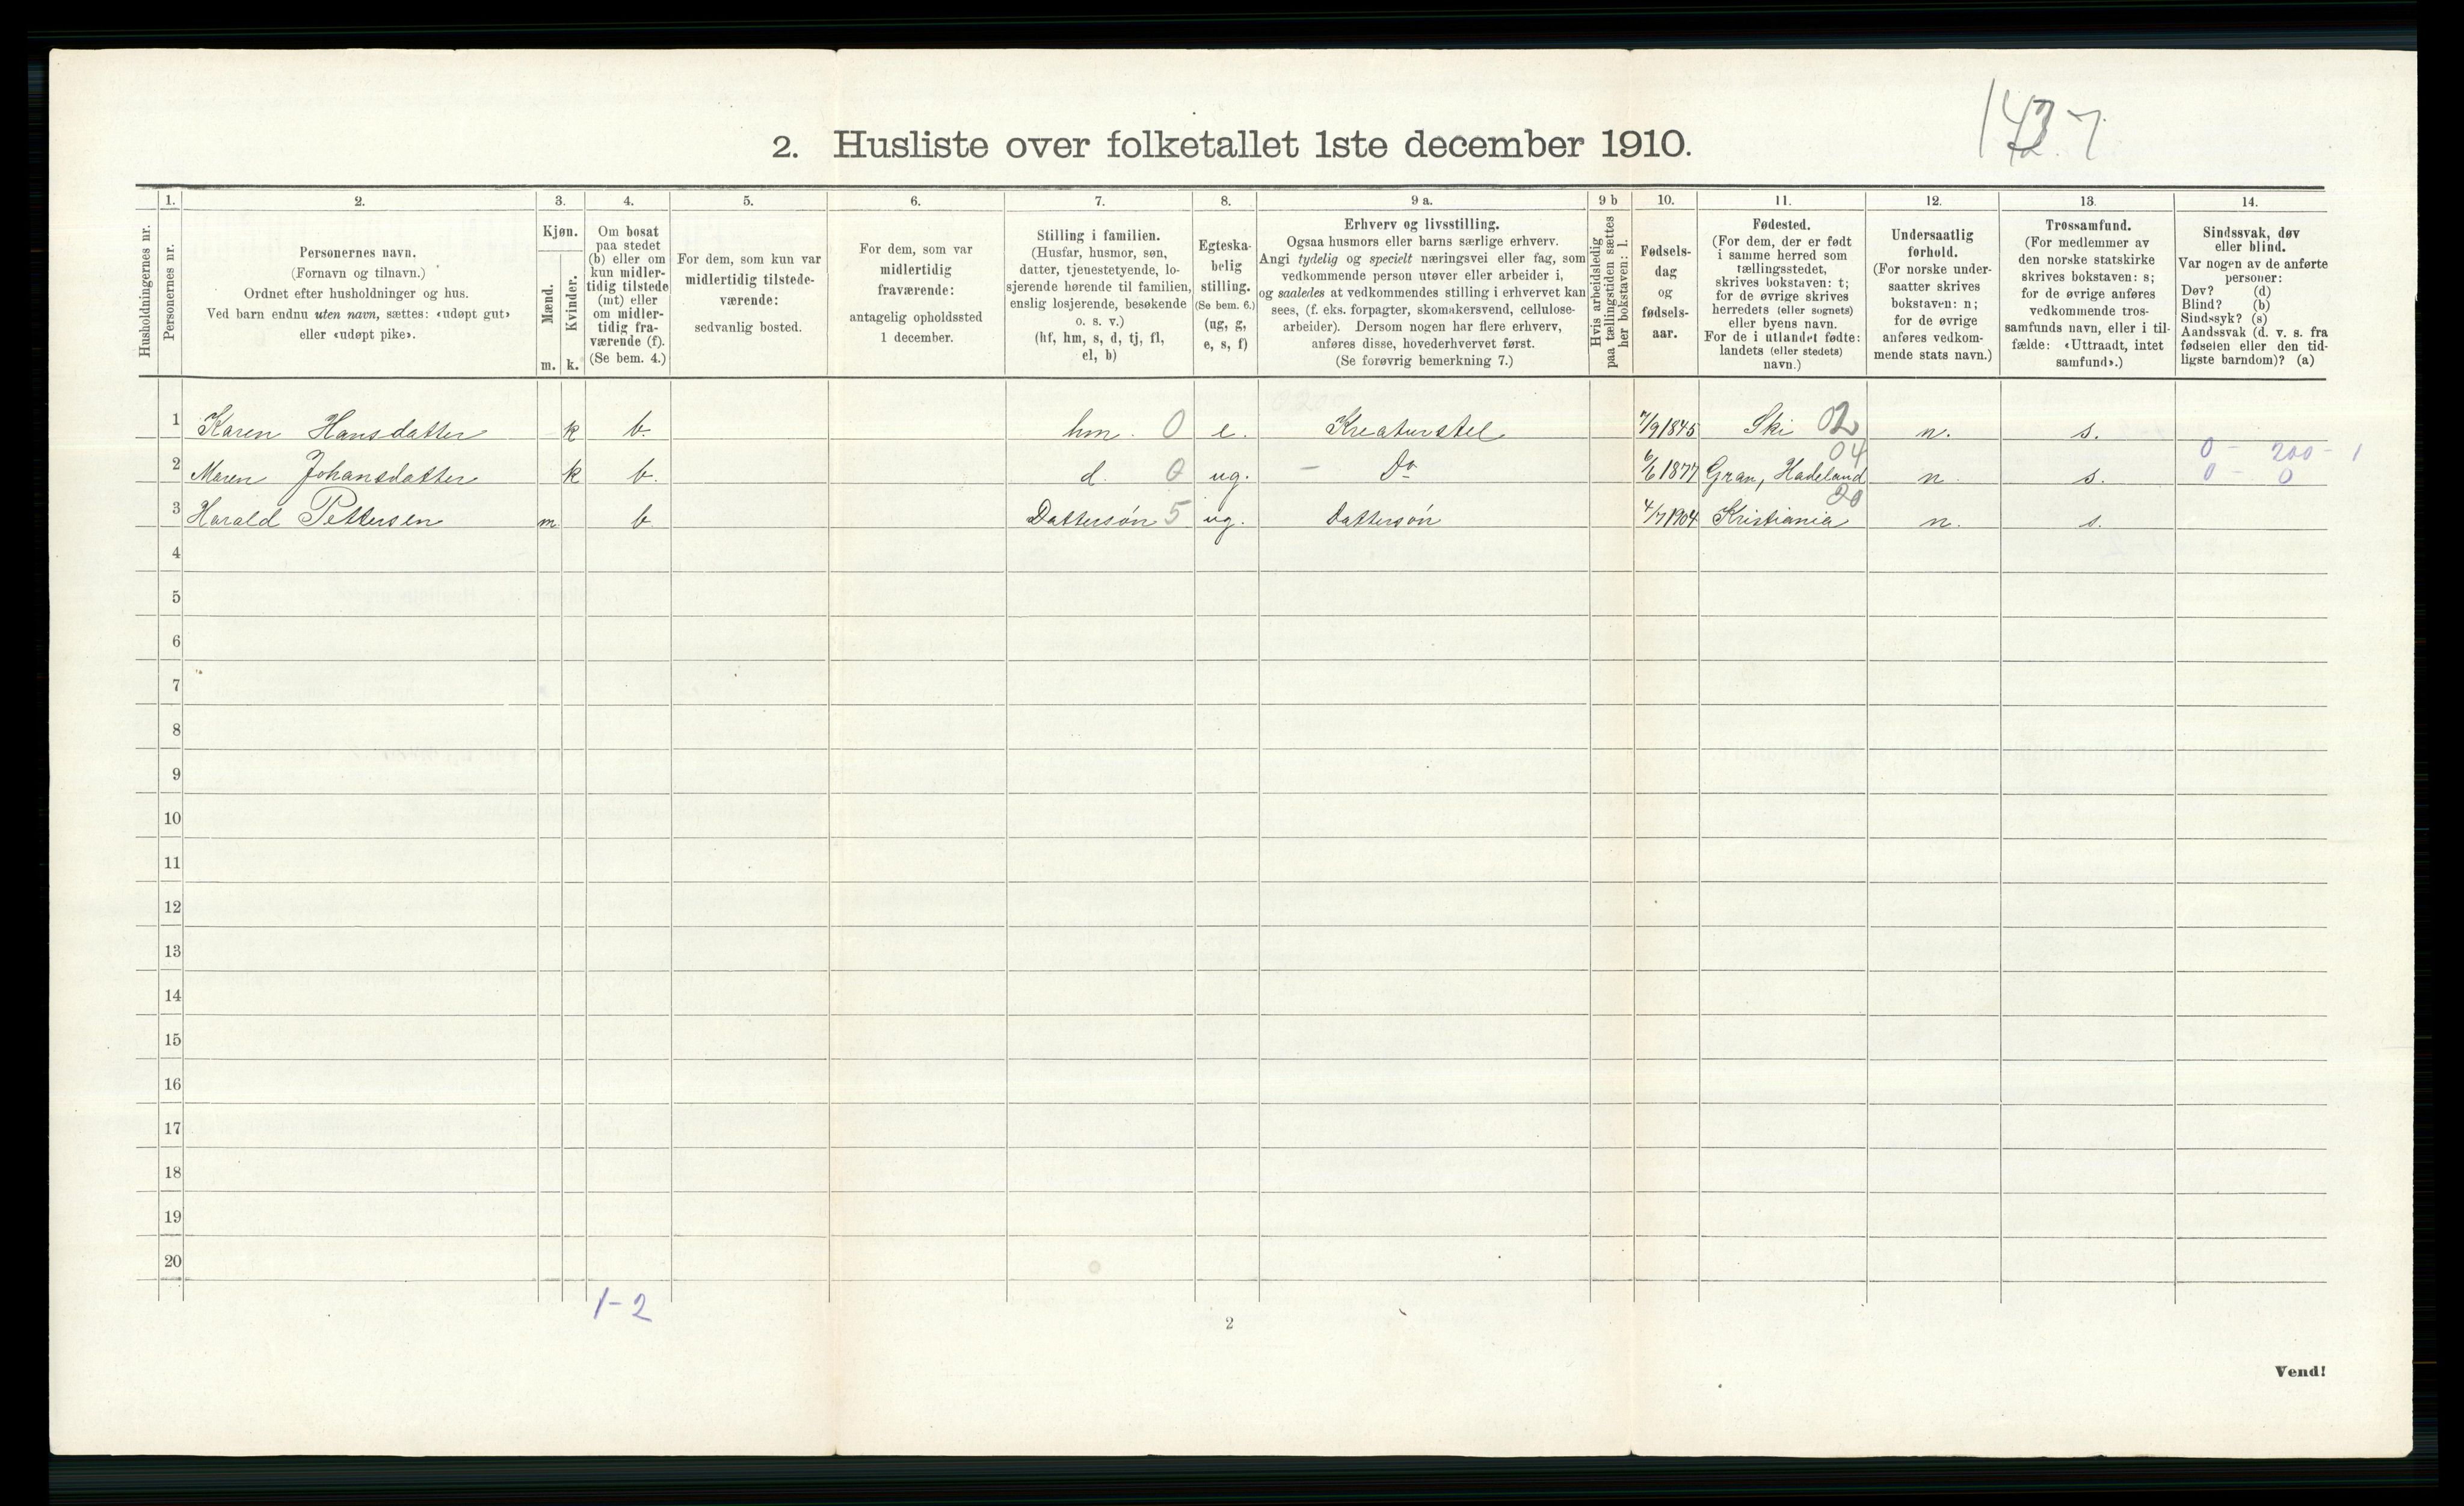 1 43 7
2.
2. Husliste over folketallet 1ste december 1910.
Husholdningernes nr.
1.
Personernes nr.
2.
Personernes navn.
(Fornavn og tilnavn.)
Ordnet efter husholdninger og hus.
Ved barn endnu uten navn, sættes: «udøpt gut»
eller «udøpt pike».
3.
Kjøn.
Mænd.
m.
Kvinder.
k.
4.
Om bosat
paa stedet
(b) eller om
kun midler-
tidig tilstede
(mt) eller
om midler-
tidig fra-
værende (f).
(Se bem. 4.)
5.
For dem, som kun var
midlertidig tilstede-
værende:
sedvanlig bosted.
6.
For dem, som var
midlertidig
fraværende:
antagelig opholdssted
1 december.
7.
Stilling i familien.
(Husfar, husmor, søn,
datter, tjenestetyende, lo-
sjerende hørende til familien,
enslig losjerende, besøkende
o. s. v.)
(hf, hm, s, d, tj, fl,
el, b)
8.
Egteska-
belig
stilling.
(Se bem. 6.)
(ug, g,
e, s, f)
9 a.
Erhverv og livsstilling.
Ogsaa husmors eller barns særlige erhverv.
Angi tydelig og specielt næringsvei eller fag, som
vedkommende person utøver eller arbeider i,
og saaledes at vedkommendes stilling i erhvervet kan
sees, (f. eks. forpagter, skomakersvend, cellulose-
arbeider). Dersom nogen har flere erhverv,
anføres disse, hovederhvervet først.
(Se forøvrig bemerkning 7.)
9 b
Hvis arbeidsledig
paa tællingstiden sættes
her bokstaven: l.
10.
Fødsels-
dag
og
fødsels-
aar.
11.
Fødested.
(For dem, der er født
i samme herred som
tællingsstedet,
skrives bokstaven: t;
for de øvrige skrives
herredets (eller sognets)
eller byens navn.
For de i utlandet fødte:
landets (eller stedets)
navn.)
12.
Undersaatlig
forhold.
(For norske under-
saatter skrives
bokstaven: n;
for de øvrige
anføres vedkom-
mende stats navn.)
13.
Trossamfund.
(For medlemmer av
den norske statskirke
skrives bokstaven: s;
for de øvrige anføres
vedkommende tros-
samfunds navn, eller i til-
fælde: «Uttraadt, intet
samfund».)
14.
Sindssvak, døv
eller blind.
Var nogen av de anførte
personer:
Døv? (d)
Blind? (b)
Sindssyk? (s)
Aandssvak (d. v. s. fra
fødselen eller den tid-
ligste barndom)? (a)
1 Karen Hansdatter k b. hm. 0 e. Kreaturstel 7/9 1845 Ski 02 n. s.
2 Maren Johansdatter k b. d. 0 ug. - Do 6/6 1877 Gran, Hadeland 04 n. s. 0 - 200 - 1
0 - 0
3 Harald Pettersen m b Dattersön 5 ug. Dattersön 4/7 1904 Kristiania 20 n. s.
4
5
6
7
8
9
10
11
12
13
14
15
16
17
18
19
20
1-2
2
Vend!